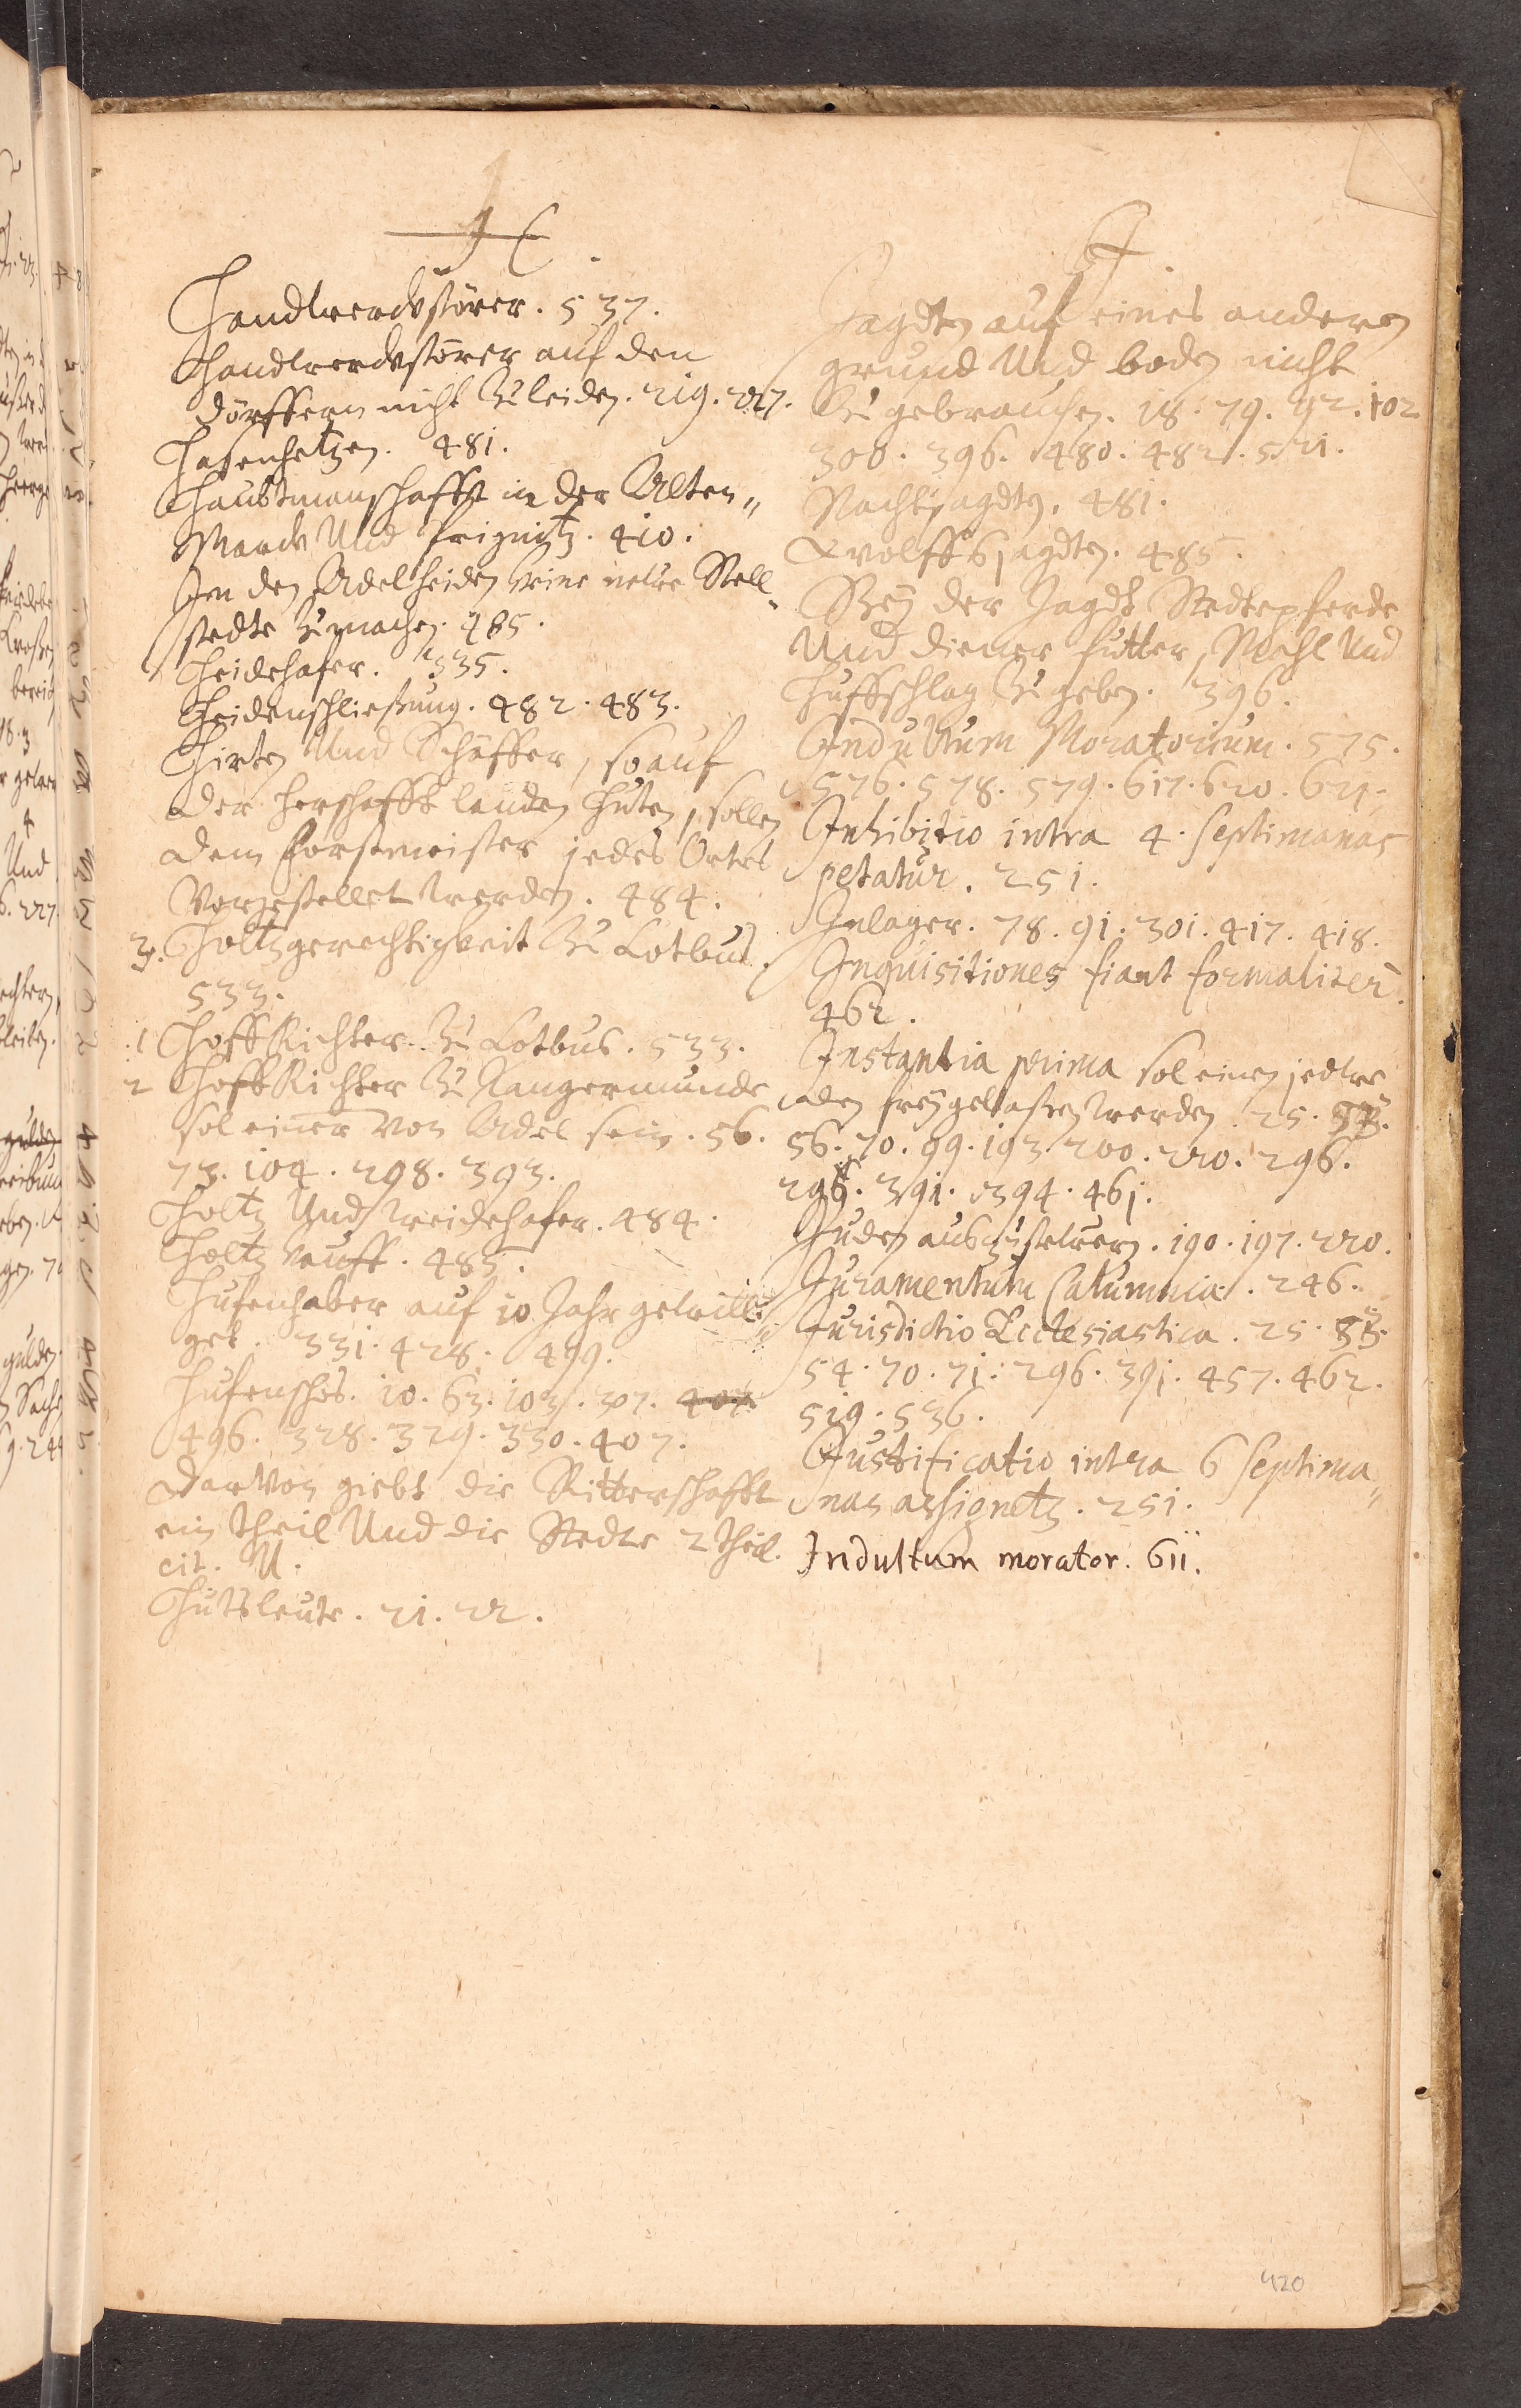 H.
Handwercksstörer. 537.
Handwercksstörer auf den
Dörffern nicht Zu leiden. 219. 227.
Hasenhetzen. 481.
Haubtmanschafft in der Alten„
Marck Und Prignitz. 410.
In den Adelheiden Keine newe Stell„
stedte Zu machen. 485.
Heidehafer. 335.
Heidenschließung. 482. 483.
Hirten Und Schäffer, so auf
der Herschafft landen Huten, sollen
dem Forstmeister jedes Ortes
Vorgestellet werden. 484.
3. Holtzgerechtigkeit Zu Cotbus.
533.
1 HoffRichter Zu Cotbus. 533.
2 HoffRichter Zu Tangermunde
sol einer Von Adel sein. 56.
73. 104. 298. 393.
Holtz Und weidehafer. 484.
Holtz Kauff. 485.
Hufenhaber auf 10 Jahr gewilli„
get. 331. 428. 499.
Hufenschos. 10. 63. 103. 307. 407.
496. 328. 329. 330. 407.
darvon giebt die Ritterschafft
ein theil Und die Stedte 2 theil.
cit. U.
Hutsleute. 21. 22.
J.
Jagdten auf eines anderen
grund Und boden nicht
Zu gebrauchen. 18. 79. 92. 102
300. 396. 480. 482. 521.
Nachtjagdten. 481.
Wolffsjagdten. 485.
Bey der Jagdt Stedtepferde
Und diener futter, Mahl Und
Huffschlag Zu geben. 396.
Indultum Moratorium. 575.
576. 578. 579. 617. 620. 621.
Inhibitio intra 4. septimanas
petatur. 251.
Inlager. 78. 91. 301. 417. 418.
Inquisitiones fiant formaliter.
462.
Instantia prima sol einen jedwe
den frey gelassen werden. 25.
56. 70. 99. 193. 200. 220. 296.
391. 394. 461.
Juden auszuschaffen. 190. 197. 220.
Juramentum Calumnia. 246.
Jurisdictio Ecclesiastica. 25.
54. 70. 71. 296. 391. 457. 462.
519. 536.
Justificatio intra 6 septima„
nas assignetz. 251.
Indultum morator. 611.
420